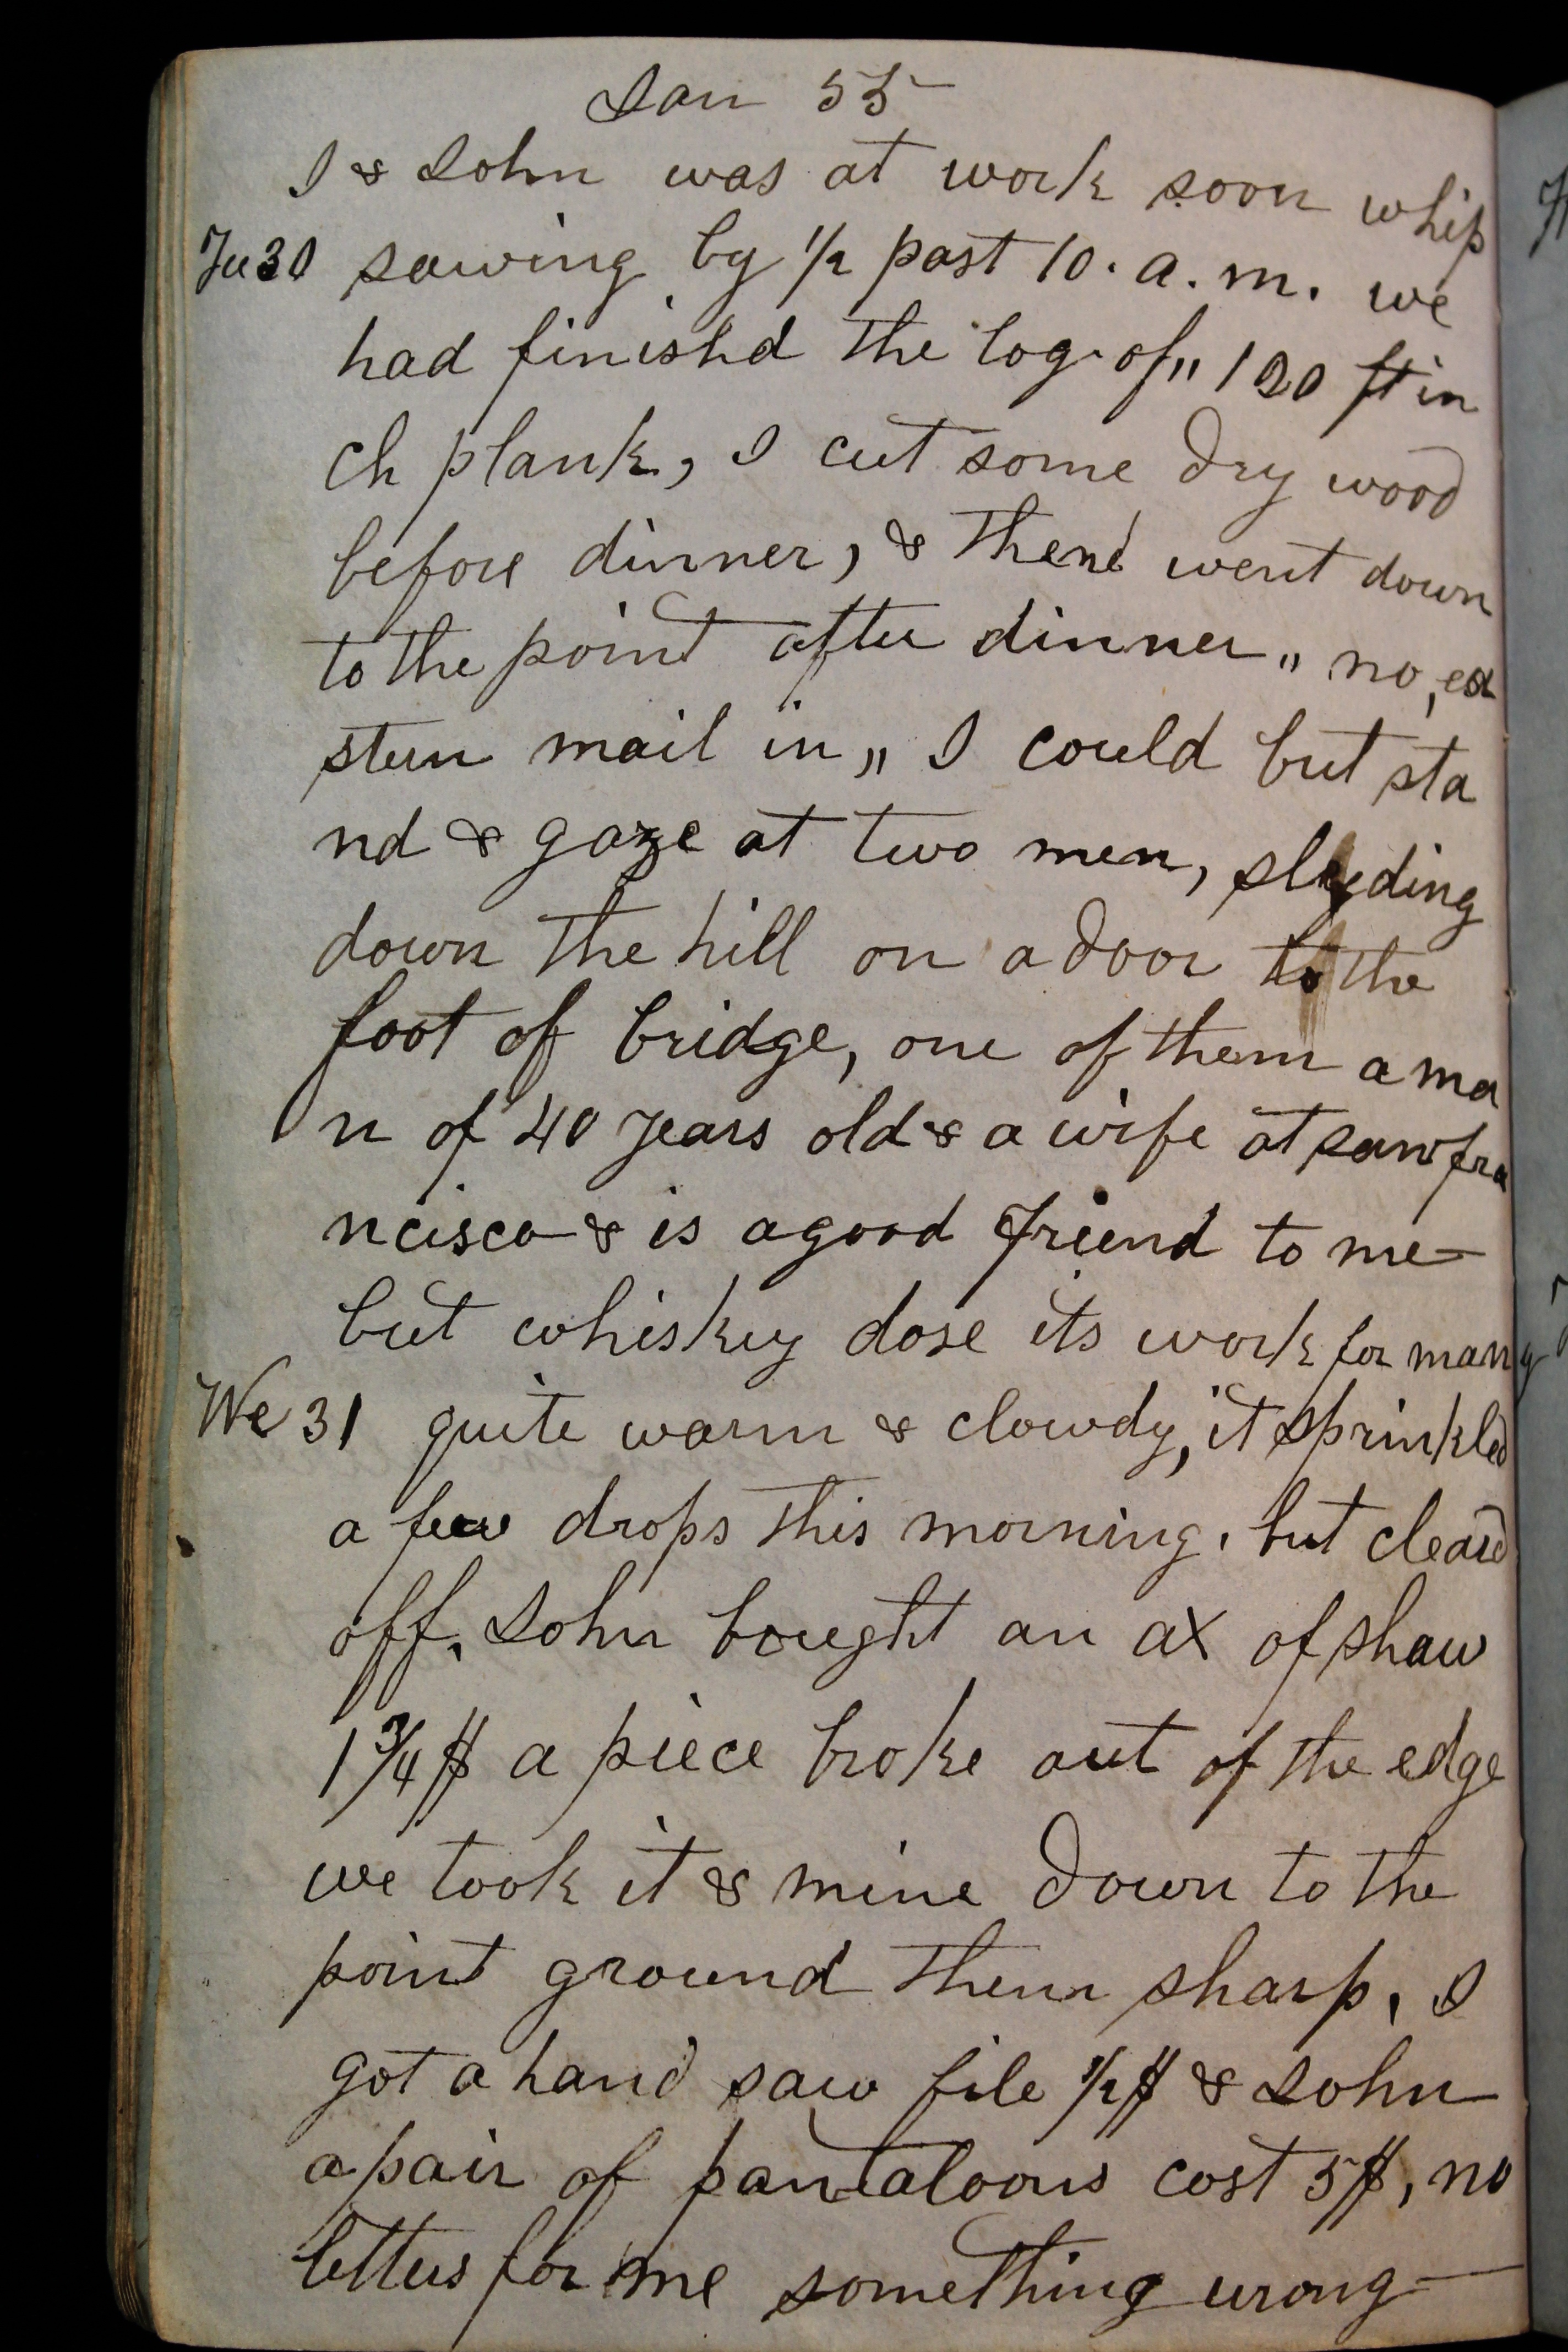 Jan 55
I & John was at work soon whip
Tu 30 sawing by 1/2 past 10. a. m. we
had finishd the log of,, 120 ft in
ch plank, I cut some dry wood
before dinner, & then went down
to the point after dinner,, no, ea
stern mail in,, I could but sta
nd & gaze at two men, sleding
down the hill on a door to the
foot of bridge, one of them a ma
n of 40 years old & a wife at sanfra
ncisco & is a good friend to me
but whiskey dose its work for many
We 31 quite warm & clowdy, it sprinkled
a few drops this morning, but cleard
off, John bought an ax of shaw
1 3/4 $ a piece broke out of the edge
we took it & mine down to the
point ground them sharp, I
got a hand saw file 1/2 $ & John
a pair of pantaloons cost 5 $, no
letters for me something wrong